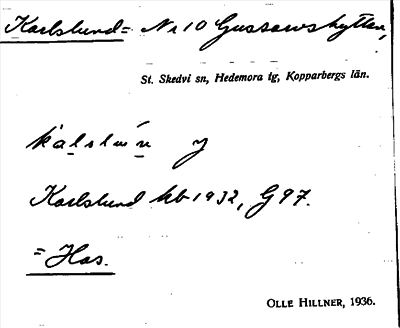 Karlslund = Nr 10 Gussarvshyttan,
St. Skedvi sn, Hedemora tg, Kopparbergs län.
y
Karlslund kb 1932, G 97.
= Has.
OLLE HILLNER, 1936.